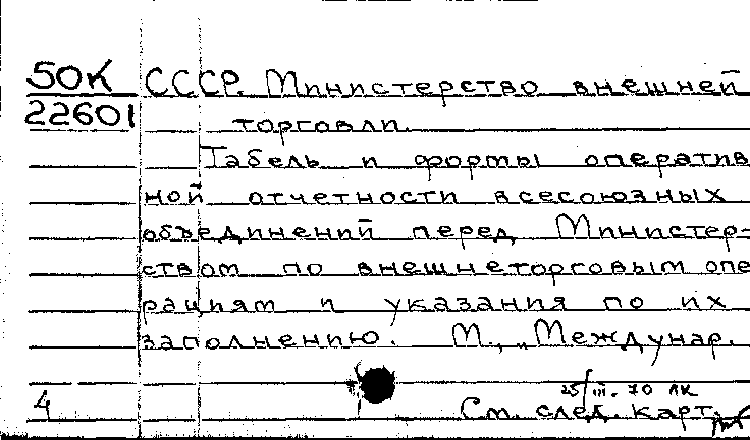 50К СССР. Министерство внешней
22601 торговли.
Табель и формы оператив
ной отчетности всесоюзных
объединений перед Министер-
ством по внешнеторговым опе
рациям и указания по их
заполнению. М., „Междунар.
25/III. 70 ЛК
4 См. след. карт.